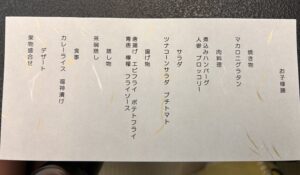 お子様膳
焼き物
マカロニグラタン
肉料理
煮込みハンバーグ
人参 ブロッコリー
サラダ
ツナコーンサラダ プチトマト
揚げ物
唐揚げ エビフライ ポテトフライ
青唐 檸檬 フライソース
蒸し物
茶碗蒸し
食事
カレーライス 福神漬け
デザート
果物盛合せ